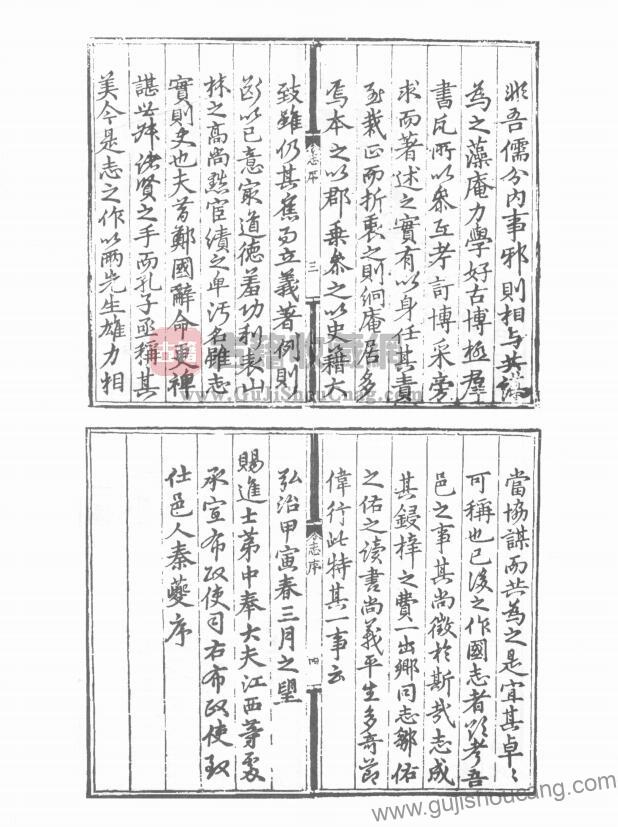 非吾儒分内事邪則相与共
為之藻庵力學好古博極群
書凡所以參互考訂博采旁
求而著述之實有以身任其責
至裁正而折衷之則絅庵居多
焉本之以郡乘參之以史籍大
志序
三
致雖仍其舊而立義著例則
斷以已意崇道德羞功利表山
林之高尚黜宦績之卑污名雖志
實則史也夫昔鄭國辭命更裨
諶世叔諸賢之手而孔子亟稱其
美今是志之作以兩先生雄力相
www.GujiShouCang.com
當協謀而共為之是宜其卓〻
可稱也已後之作國志者欲考吾
邑之事其尚徵於斯哉志成
其鋟梓之費一出鄉同志鄒佑
之佑之读書尚義平生多奇節
偉行此特其一事云
志序
四
弘治甲寅春三月之望
賜進士第中奉大夫江西等處
承宣布政使司右布政使致
仕邑人秦夔序
www.gujishoucang.com